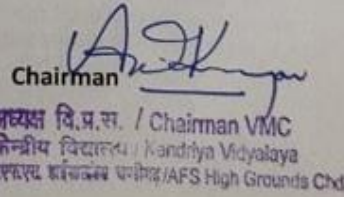 Chairman
अध्यक्ष वि.प्र.स. / Chairman VMC
केन्द्रीय विद्यालय / Kendriya Vidyalaya
/AFS High Grounds Chd